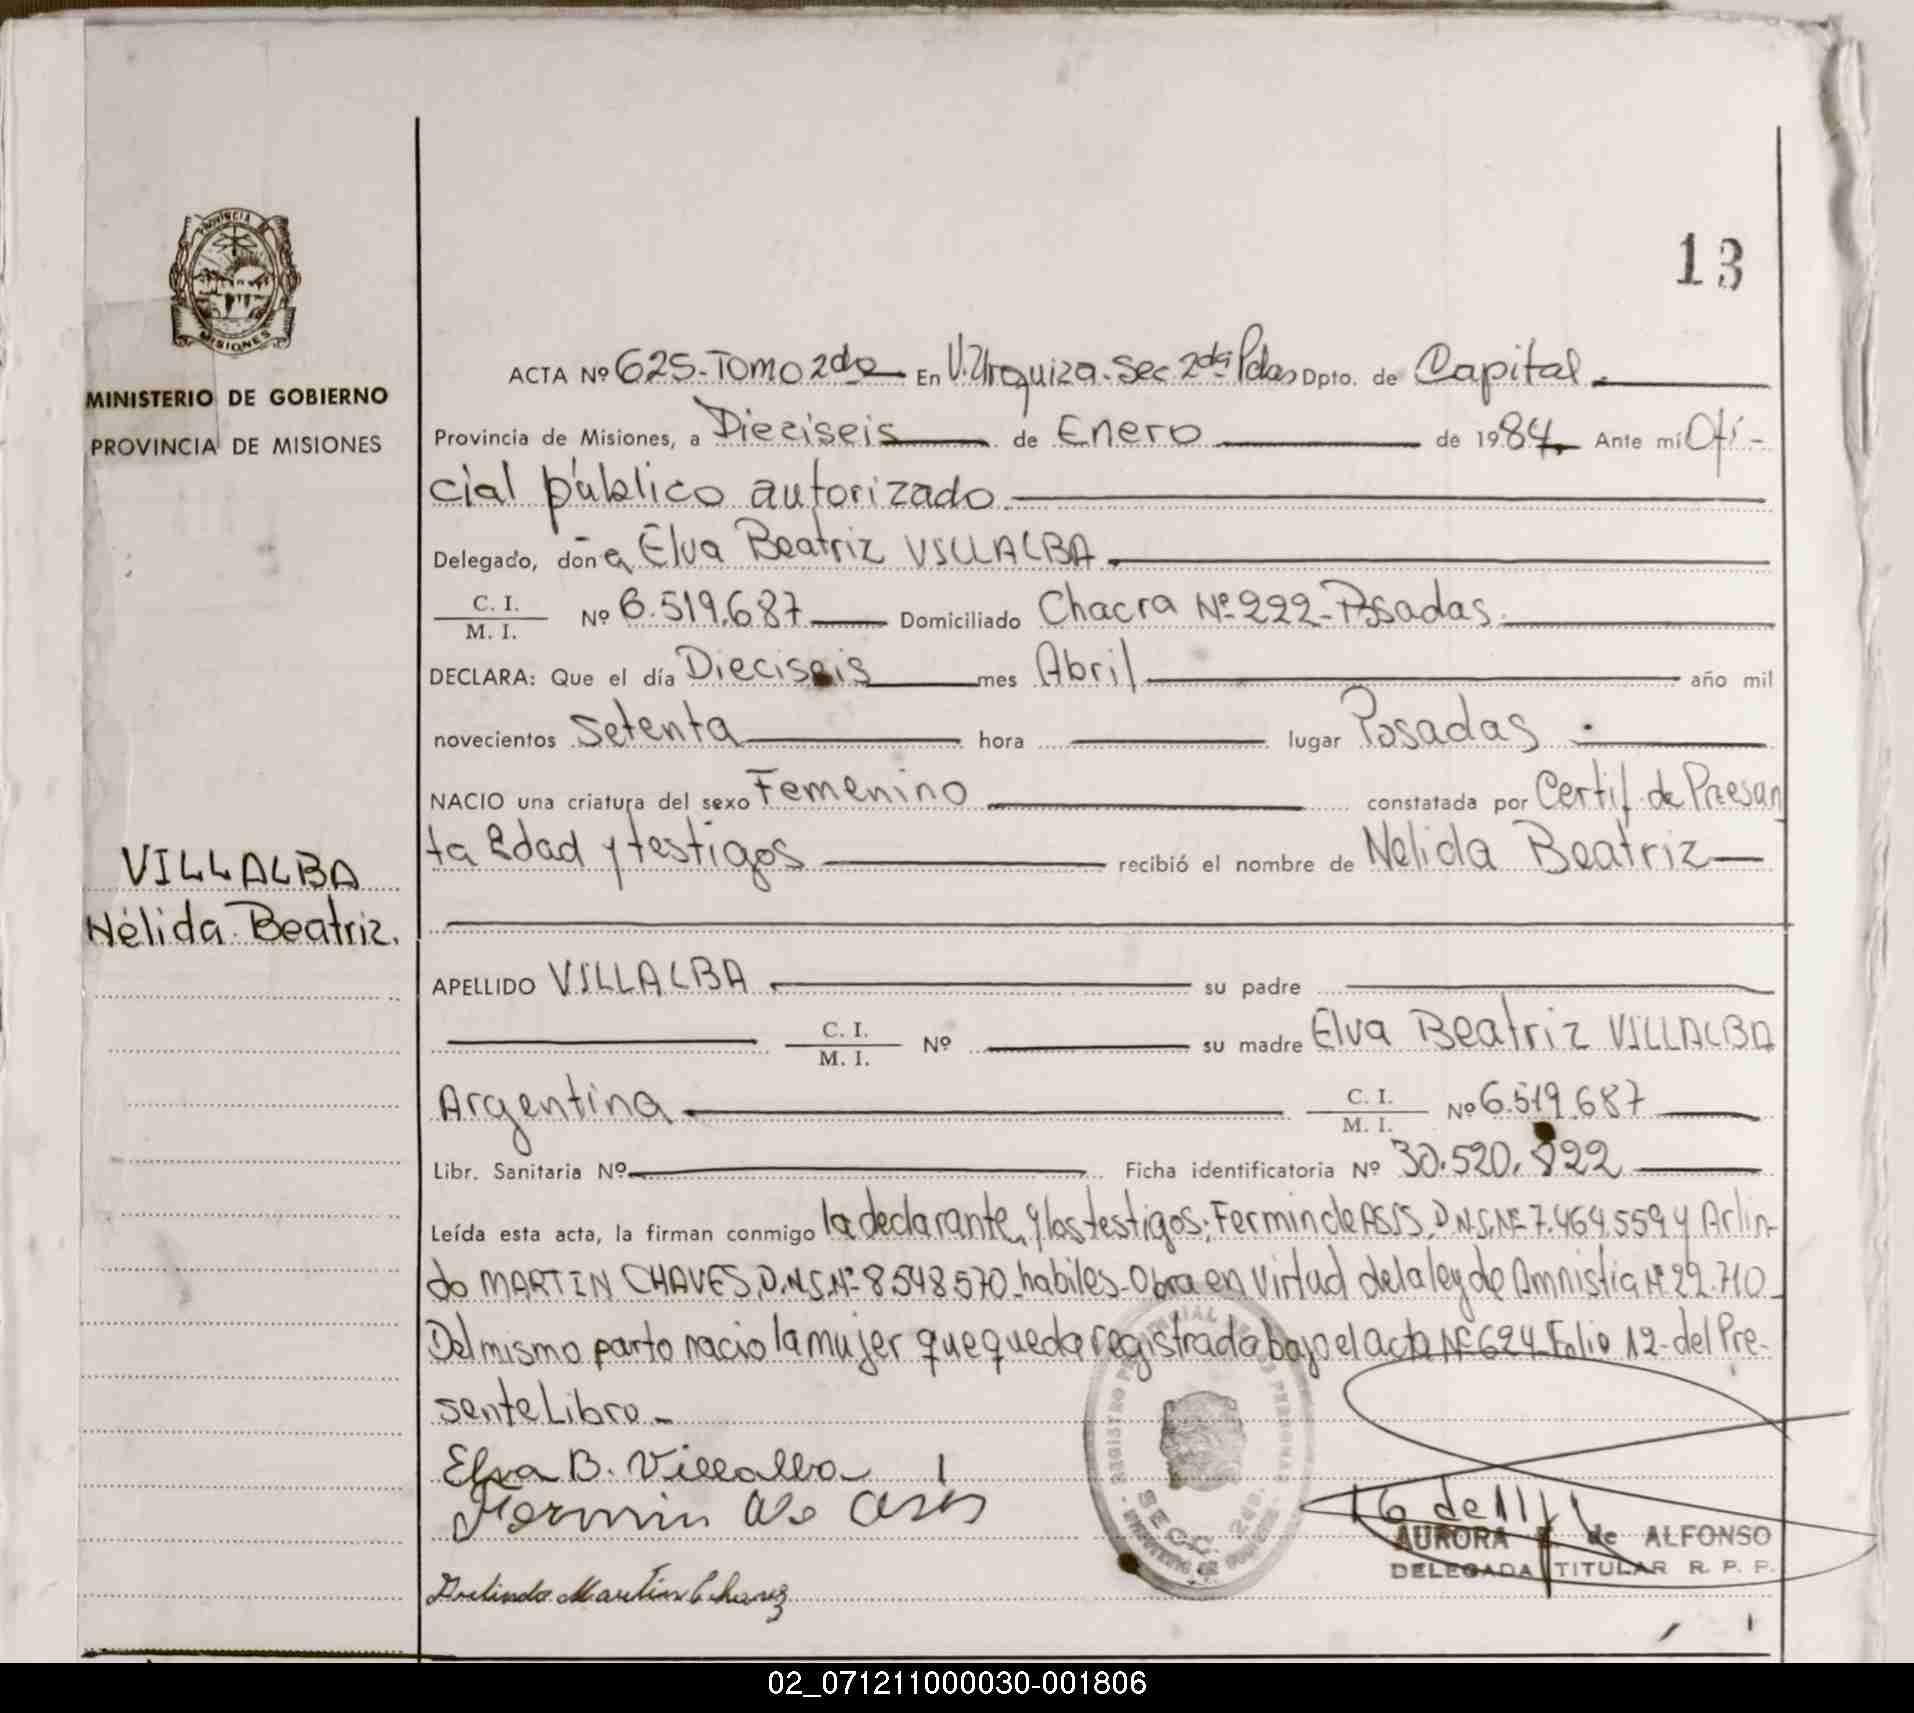 PROVINCIA
MISIONES
MINISTERIO DE GOBIERNO
PROVINCIA DE MISIONES
VILLALBA
Nélida Beatriz.
13
ACTA Nº 625-Tomo 2do En V. Urquiza-Sec 2da Pdas Dpto. de Capital
Provincia de Misiones, a Dieciseis de Enero de 1984. Ante mí Ofi-
cial público autorizado
Delegado, doña Elva Beatriz VILLALBA
C. I.
M. I. Nº 6.519.687 Domiciliado Chacra Nº 222-Posadas.
DECLARA: Que el día Dieciseis mes Abril año mil
novecientos Setenta hora lugar Posadas.
NACIO una criatura del sexo Femenino constatada por Certif. de Presun
ta Edad y testigos recibió el nombre de Nelida Beatriz
APELLIDO VILLALBA su padre
C. I.
M. I. Nº su madre Elva Beatriz VILLALBA
Argentina C. I.
M. I. Nº 6.519.687
Libr. Sanitaria Nº Ficha identificatoria Nº 30.520.822
Leída esta acta, la firman conmigo la declarante, y los testigos: Fermin de ASIS, D.N.I. Nº 7.464.559 y Arlin-
do MARTIN CHAVES, D.N.I. Nº 8.548.570 habiles-Obra en Virtud de la ley de Amnistia Nº 22.710
Del mismo parto nacio la mujer que queda registrada bajo el acta Nº 624 Folio 12-del Pre-
sente Libro.
Elva B. Villalba
Fermin de Asis
Arlindo Martin Chavez
SECC. 2da.
AURORA de ALFONSO
DELEGADA TITULAR R. P. P.
02_071211000030-001806